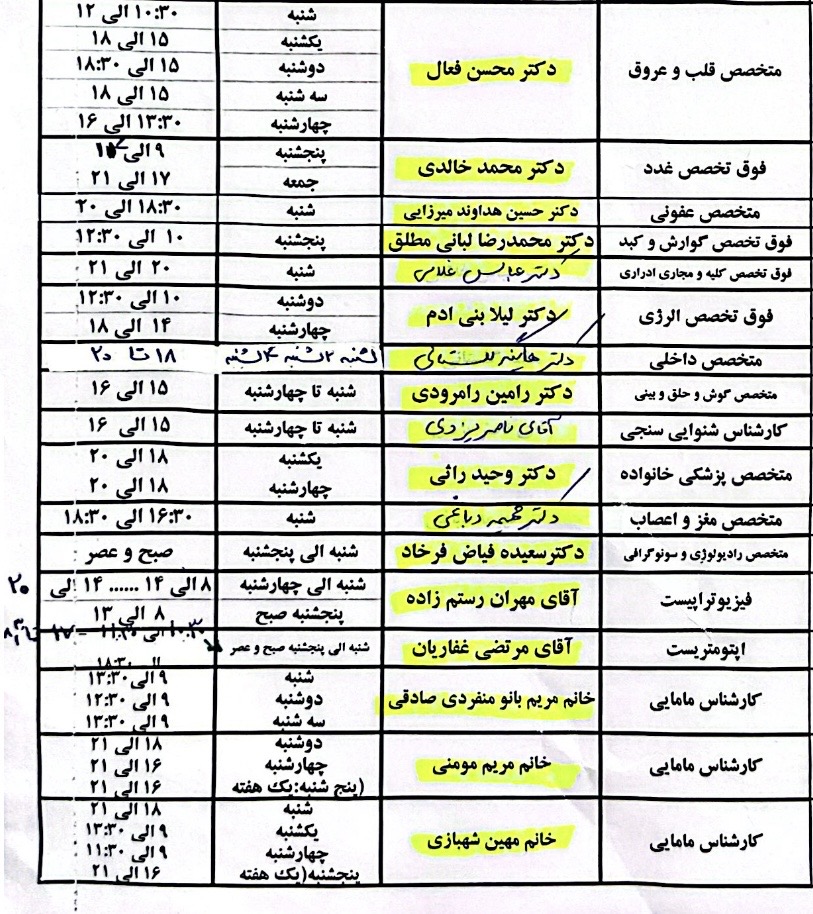 متخصص قلب و عروق
دکتر محسن فعال
شنبه ۱۰:۳۰ الی ۱۲
یکشنبه ۱۵ الی ۱۸
دوشنبه ۱۵ الی ۱۸:۳۰
سه شنبه ۱۵ الی ۱۸
چهارشنبه ۱۳:۳۰ الی ۱۶
فوق تخصص غدد
دکتر محمد خالدی
پنجشنبه ۹ الی
جمعه ۱۷ الی ۲۱
متخصص عفونی
دکتر حسین هداوند میرزایی
شنبه ۱۸:۳۰ الی ۲۰
فوق تخصص گوارش و کبد
دکتر محمدرضا لبانی مطلق
پنجشنبه ۱۰ الی ۱۲:۳۰
فوق تخصص کلیه و مجاری ادراری
دکتر عباس غلامی
شنبه ۲۰ الی ۲۱
فوق تخصص الرژی
دکتر لیلا بنی ادم
دوشنبه ۱۰ الی ۱۲:۳۰
چهارشنبه ۱۴ الی ۱۸
متخصص داخلی
دکتر
۱شنبه ۲شنبه ۴شنبه ۱۸ تا ۲۰
متخصص گوش و حلق و بینی
دکتر رامین رامرودی
شنبه تا چهارشنبه ۱۵ الی ۱۶
کارشناس شنوایی سنجی
آقای ناصر یزدی
شنبه تا چهارشنبه ۱۵ الی ۱۶
متخصص پزشکی خانواده
دکتر وحید راثی
یکشنبه ۱۸ الی ۲۰
چهارشنبه ۱۸ الی ۲۰
متخصص مغز و اعصاب
دکتر دباغی
شنبه ۱۶:۳۰ الی ۱۸:۳۰
متخصص رادیولوژی و سونوگرافی
دکترسعیده فیاض فرخاد
شنبه الی پنجشنبه صبح و عصر
فیزیوتراپیست
آقای مهران رستم زاده
شنبه الی چهارشنبه ۸ الی ۱۴ ...... ۱۴ الی ۲۰
پنجشنبه صبح ۸ الی ۱۳
اپتومتریست
آقای مرتضی غفاریان
شنبه الی پنجشنبه صبح و عصر
کارشناس مامایی
خانم مریم بانو منفردی صادقی
شنبه ۹ الی ۱۳:۳۰
دوشنبه ۹ الی ۱۲:۳۰
سه شنبه ۹ الی ۱۳:۳۰
کارشناس مامایی
خانم مریم مومنی
دوشنبه ۱۸ الی ۲۱
چهارشنبه ۱۶ الی ۲۱
(پنج شنبه:یک هفته ۱۶ الی ۲۱
کارشناس مامایی
خانم مهین شهبازی
شنبه ۱۸ الی ۲۱
یکشنبه ۹ الی ۱۳:۳۰
چهارشنبه ۹ الی ۱۱:۳۰
پنجشنبه(یک هفته ۱۶ الی ۲۱